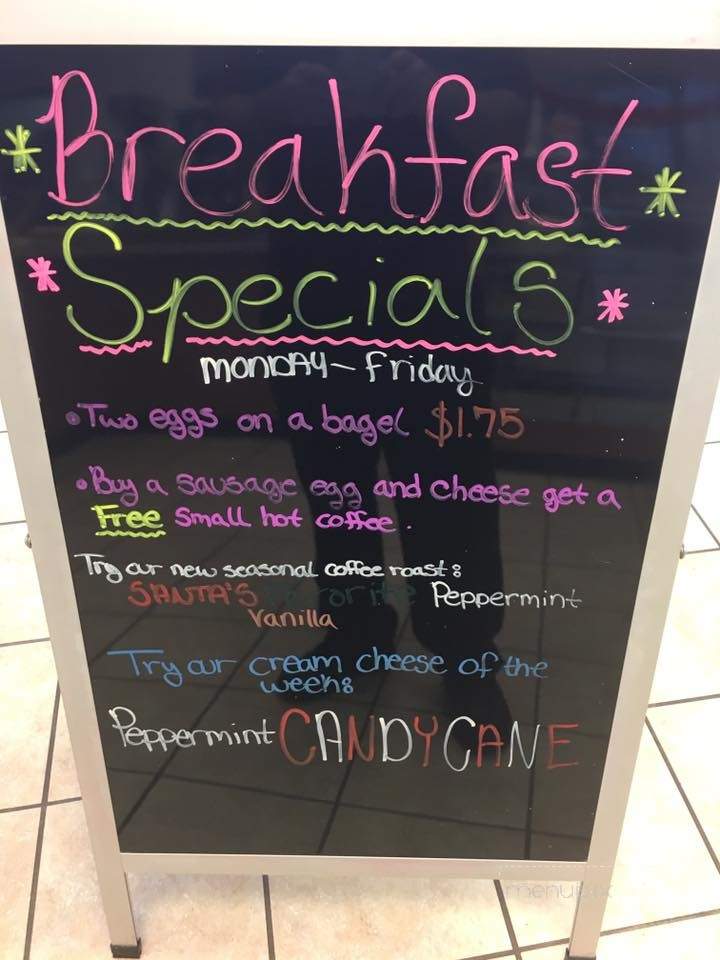 Breakfast
Specials
MONDAY - Friday
• Two eggs on a bagel $1.75
• Buy a sausage egg and cheese get a
Free small hot coffee.
Try our new seasonal coffee roast:
SANTA'S Favorite Peppermint
Vanilla
Try our cream cheese of the
week:
Peppermint CANDYCANE